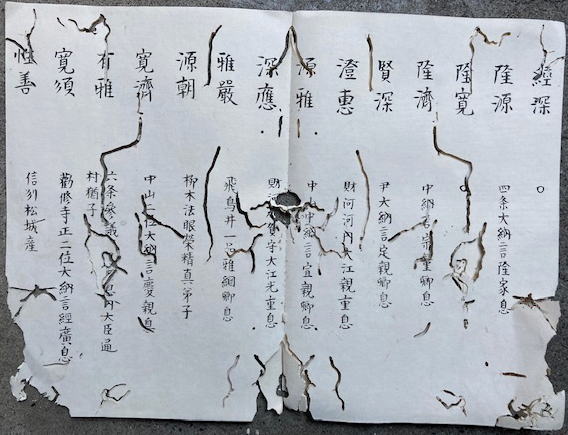 經深 ○
隆源 四条大納言隆家息
隆寛 ○
隆濟 中納言重卿息
賢深 尹大納言定親卿息
澄惠 財河河内大江親重息
源雅 中中納言宣親卿息
深應 財守大江光重息
雅嚴 飛鳥井一品雅綱卿息
源朝 柳木法眼榮精真弟子
寛濟 中山位大納言慶親息
有雅 六条参議息内大臣通
村猶子
寛須 勸修寺正二位大納言經廣息
性善 信州松城産